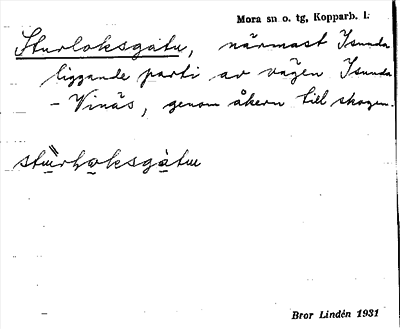 Mora sn o. tg, Kopparb. l.
Sturloksgatu, närmast Isunda
liggande parti av vägen Isunda
- Vinäs, genom åkern till skogen.
Bror Lindén 1931